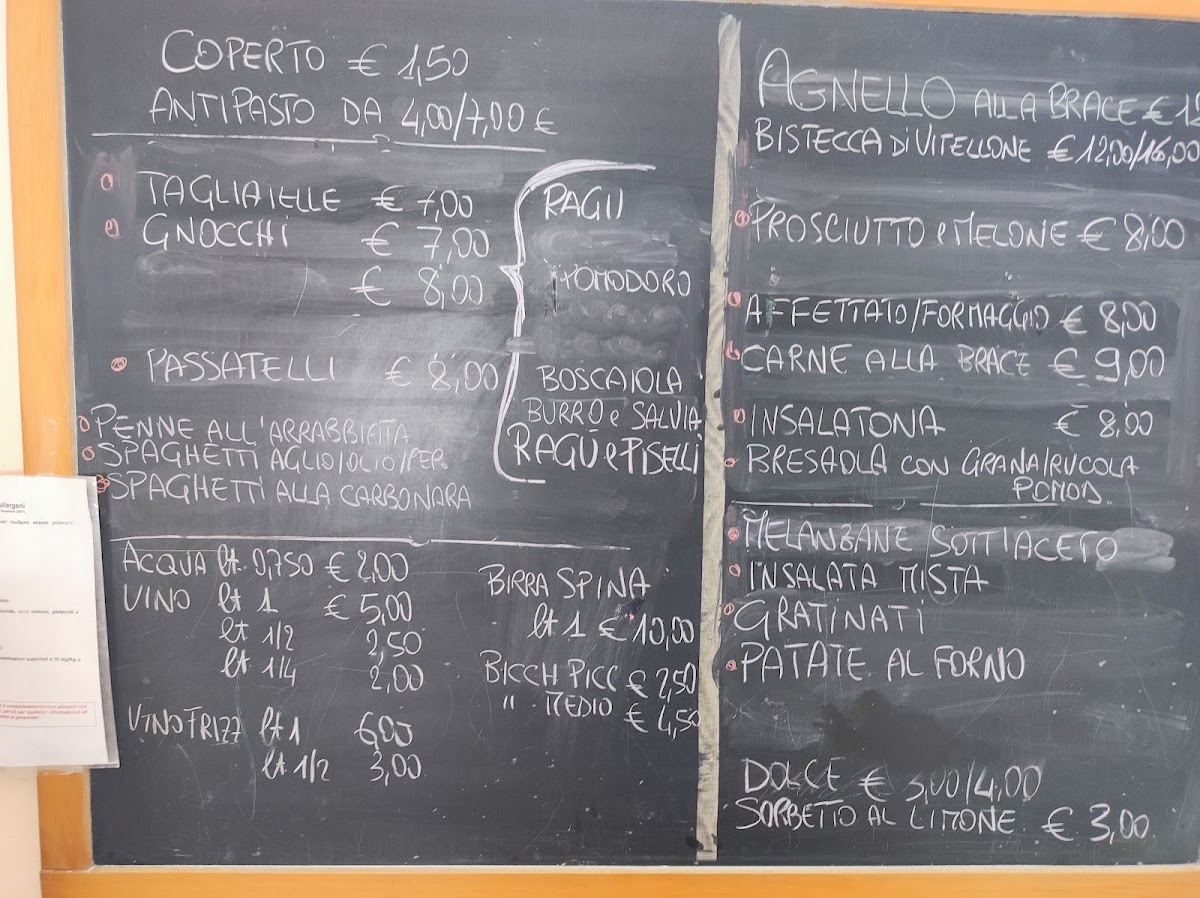 COPERTO € 1,50
ANTIPASTO DA 4,00/7,00 €
TAGLIATELLE € 7,00
GNOCCHI € 7,00
€ 8,00
PASSATELLI € 8,00
RAGÙ
POMODORO
BOSCAIOLA
BURRO e SALVIA
RAGÙ e PISELLI
PENNE ALL'ARRABBIATA
SPAGHETTI AGLIO/OLIO/PEP.
SPAGHETTI ALLA CARBONARA
ACQUA lt. 0,750 € 2,00
VINO lt 1 € 5,00
lt 1/2 2,50
lt 1/4 2,00
VINO FRIZZ lt 1 6,00
lt 1/2 3,00
BIRRA SPINA
lt 1 € 10,00
BICCH PICC € 2,50
" MEDIO € 4,50
AGNELLO ALLA BRACE €
BISTECCA DI VITELLONE € 12,00/16,00
PROSCIUTTO e MELONE € 8,00
AFFETTATO/FORMAGGIO € 8,00
CARNE ALLA BRACE € 9,00
INSALATONA € 8,00
BRESAOLA CON GRANA/RUCOLA
POMOD.
MELANZANE SOTTIACETO
INSALATA MISTA
GRATINATI
PATATE AL FORNO
DOLCE € 3,00/4,00
SORBETTO AL LIMONE € 3,00
allergeni